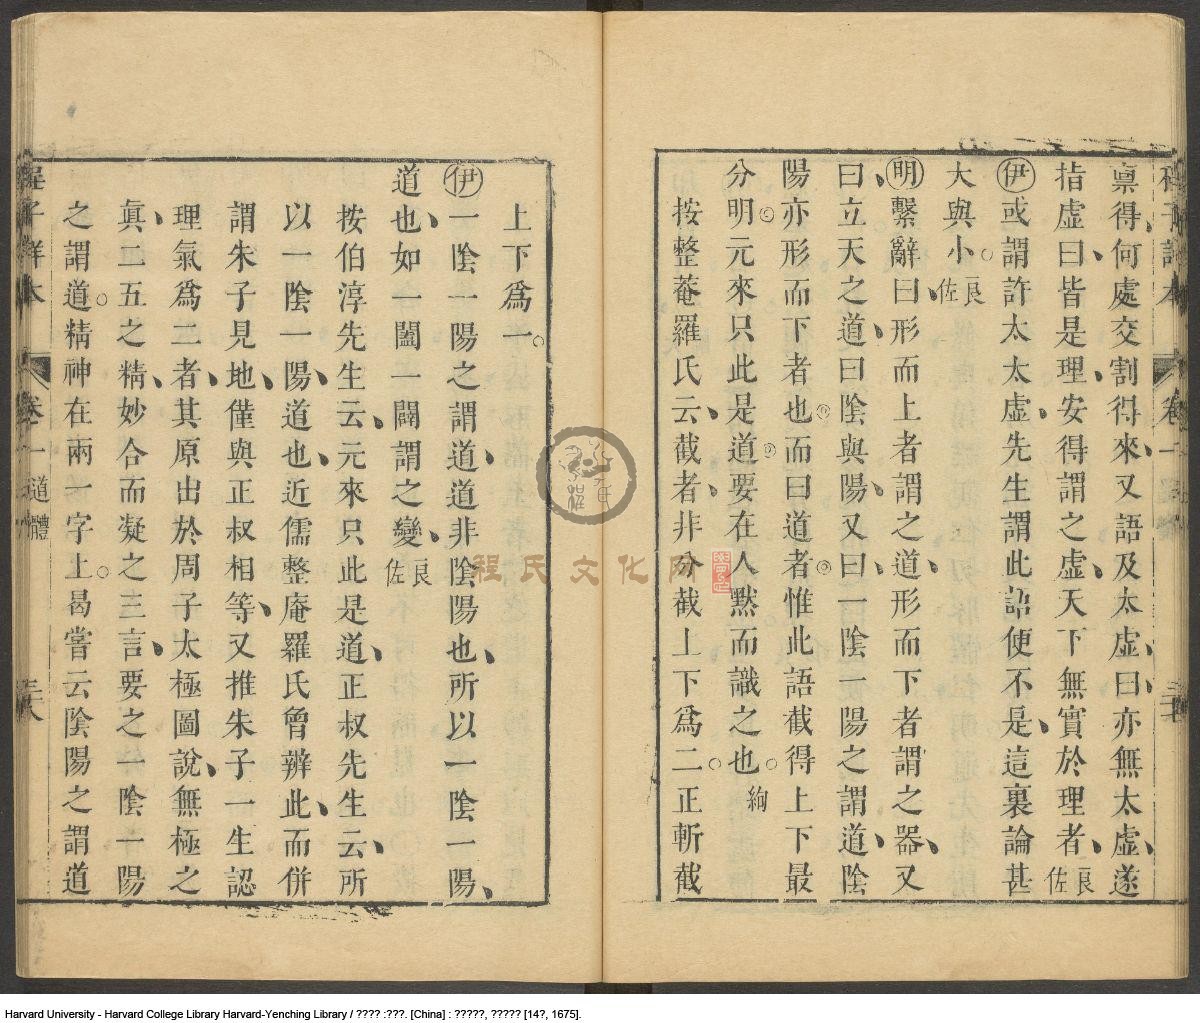 程子詳本 卷一 二十七
稟得何處交割得來又語及太虛曰亦無太虛遂
指虛曰皆是理安得謂之虛天下無實於理者良佐
伊或謂許太太虛先生謂此語便不是這裏論甚
大與小良佐
明繫辭曰形而上者謂之道形而下者謂之器又
曰立天之道曰陰與陽又曰一陰一陽之謂道陰
陽亦形而下者也而曰道者惟此語截得上下最
分明元來只此是道要在人默而識之也絢
按整菴羅氏云截者非分截上下為二正斬截
上下為一
伊一陰一陽之謂道道非陰陽也所以一陰一陽
道也如一闔一闢謂之變良佐
按伯淳先生云元來只此是道正叔先生云所
以一陰一陽道也近儒整庵羅氏曾辨此而併
謂朱子見地僅與正叔相等又推朱子一生認
理氣為二者其原出於周子太極圖說無極之
眞二五之精妙合而凝之三言要之一陰一陽
之謂道精神在兩一字上曷嘗云陰陽之謂道
程子詳本 卷一 道體 二十八
程氏文化网
Harvard University - Harvard College Library Harvard-Yenching Library / ???? :???. [China] : ?????, ????? [14?, 1675].